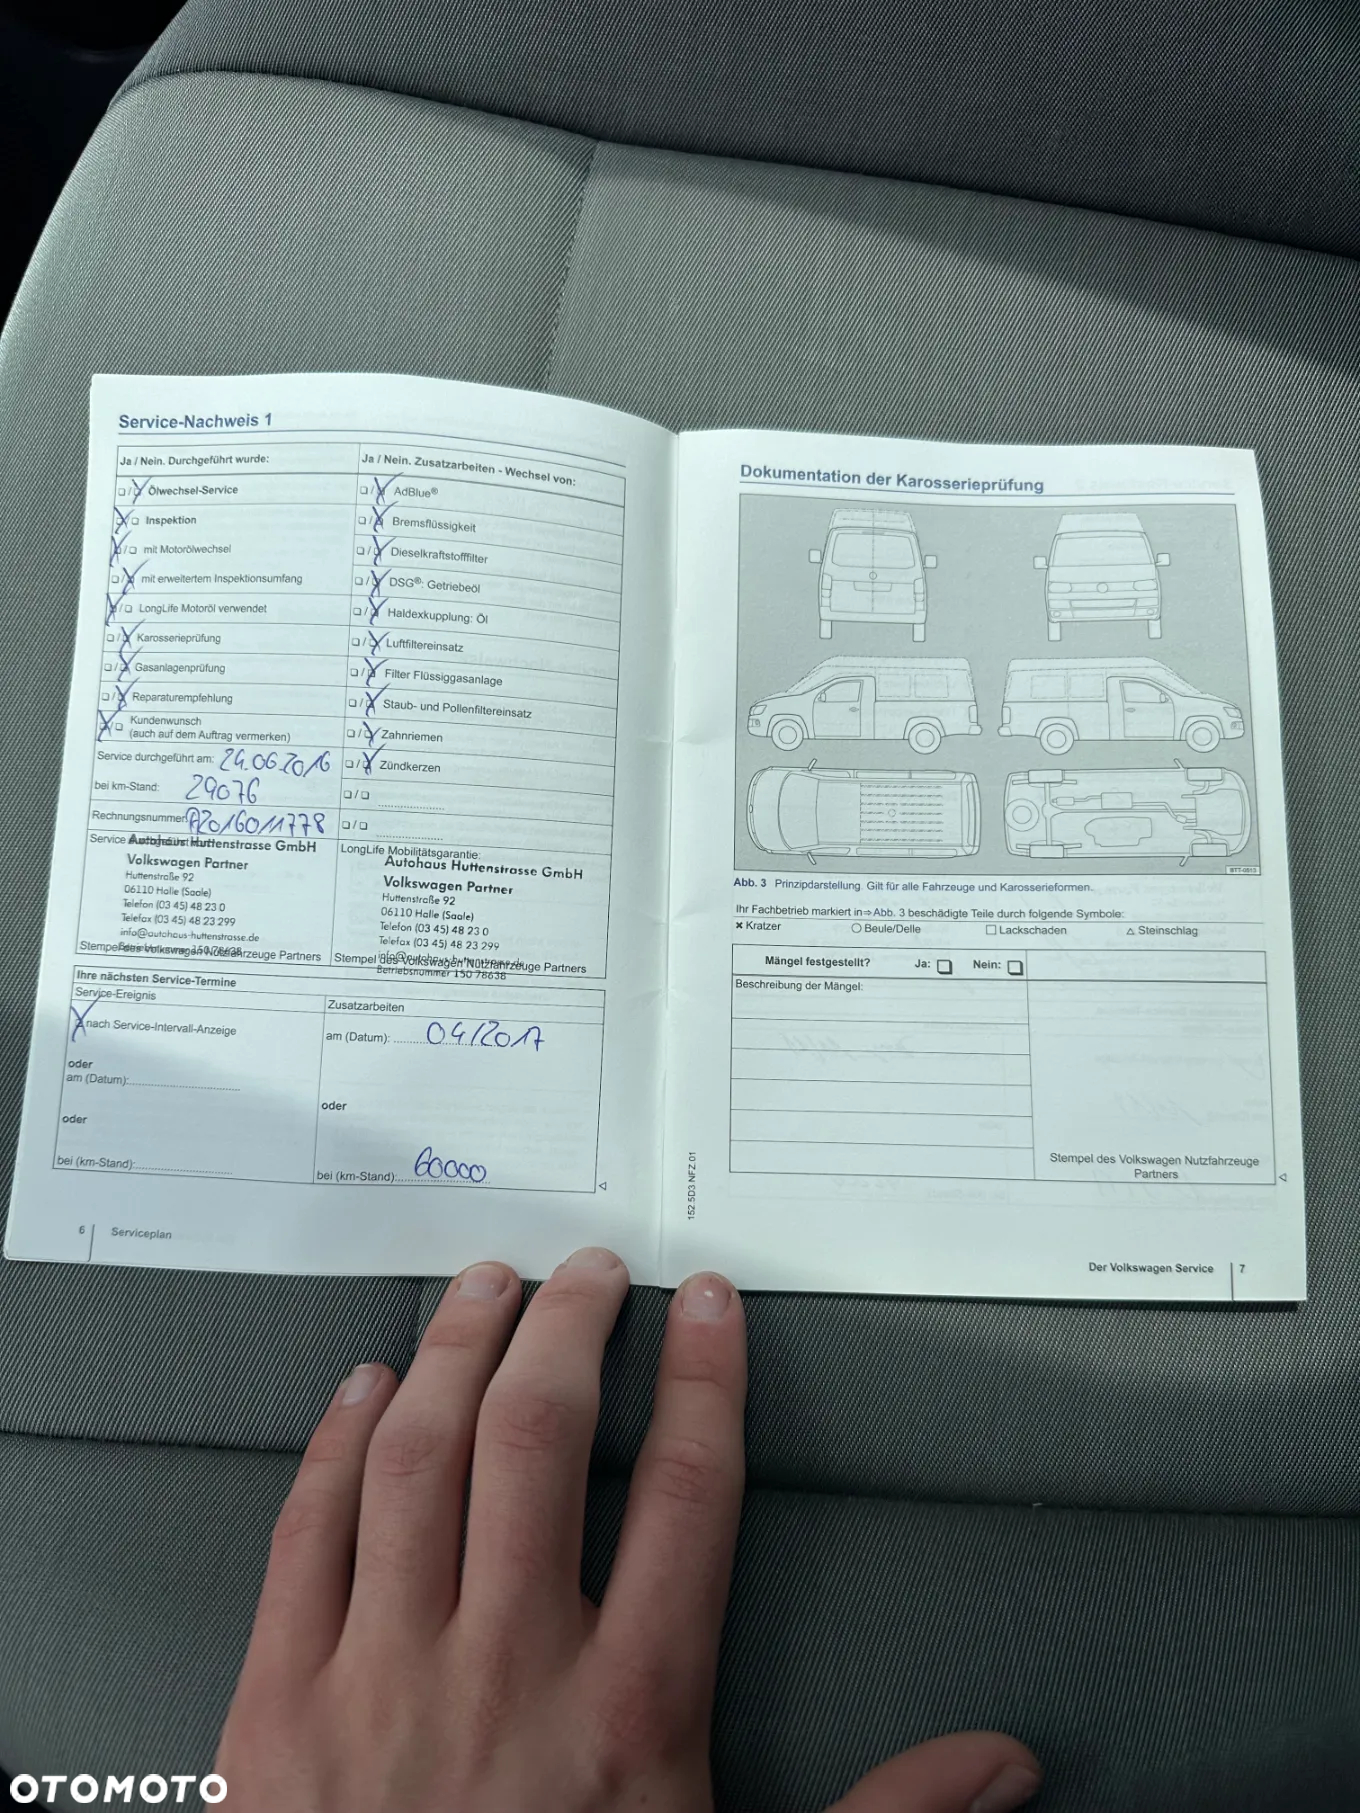 Service-Nachweis 1
Ja / Nein. Durchgeführt wurde:
Ja / Nein. Zusatzarbeiten - Wechsel von:
Ölwechsel-Service
AdBlue®
Inspektion
Bremsflüssigkeit
mit Motorölwechsel
Dieselkraftstofffilter
mit erweitertem Inspektionsumfang
DSG®: Getriebeöl
LongLife Motoröl verwendet
Haldexkupplung: Öl
Karosserieprüfung
Luftfiltereinsatz
Gasanlagenprüfung
Filter Flüssiggasanlage
Reparaturempfehlung
Staub- und Pollenfiltereinsatz
Kundenwunsch
(auch auf dem Auftrag vermerken)
Zahnriemen
Service durchgeführt am: 24.06.2016
Zündkerzen
bei km-Stand: 29076
Rechnungsnummer A2016011778
Service
Autohaus Huttenstrasse GmbH
Volkswagen Partner
Huttenstraße 92
06110 Halle (Saale)
Telefon (03 45) 48 23 0
Telefax (03 45) 48 23 299
info@autohaus-huttenstrasse.de
Stempel des Volkswagen Nutzfahrzeuge Partners
LongLife Mobilitätsgarantie:
Autohaus Huttenstrasse GmbH
Volkswagen Partner
Huttenstraße 92
06110 Halle (Saale)
Telefon (03 45) 48 23 0
Telefax (03 45) 48 23 299
Stempel des Volkswagen Nutzfahrzeuge Partners
Betriebsnummer 150 78638
Ihre nächsten Service-Termine
Service-Ereignis
Zusatzarbeiten
nach Service-Intervall-Anzeige
am (Datum): 04/2017
oder
am (Datum):
oder
oder
bei (km-Stand):
bei (km-Stand): 60000
6 Serviceplan
Dokumentation der Karosserieprüfung
BTT-0513
Abb. 3 Prinzipdarstellung. Gilt für alle Fahrzeuge und Karosserieformen.
Ihr Fachbetrieb markiert in⇒Abb. 3 beschädigte Teile durch folgende Symbole:
× Kratzer ○ Beule/Delle □ Lackschaden △ Steinschlag
Mängel festgestellt? Ja: Nein:
Beschreibung der Mängel:
Stempel des Volkswagen Nutzfahrzeuge
Partners
152.5D3.NFZ.01
Der Volkswagen Service 7
OTOMOTO